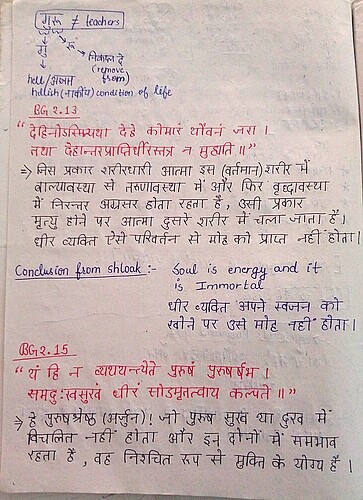 गुरू ≠ teachers
गु
रू
निकाल दे
(remove from)
hell/अज्ञान
hellish (नारकीय) condition of life
BG 2.13
" देहिनोऽस्मिन्यथा देहे कौमारं यौवनं जरा।
तथा देहान्तरप्राप्तिर्धीरस्तत्र न मुह्यति॥"
⇒ जिस प्रकार शरीरधारी आत्मा इस (वर्तमान) शरीर में
बाल्यावस्था से तरुणावस्था में और फिर वृद्धावस्था
में निरन्तर अग्रसर होता रहता है, उसी प्रकार
मृत्यु होने पर आत्मा दुसरे शरीर में चला जाता है।
धीर व्यक्ति ऐसे परिवर्तन से मोह को प्राप्त नहीं होता।
Conclusion from shloak :- Soul is energy and it
is Immortal
धीर व्यक्ति अपने स्वजन को
खोने पर उसे मोह नहीं होता।
BG 2.15
" यं हि न व्यथयन्त्येते पुरुषं पुरुषर्षभ।
समदुःखसुखं धीरं सोऽमृतत्वाय कल्पते॥"
⇒ हे पुरुषश्रेष्ठ (अर्जुन)! जो पुरुष सुख या दुख में
विचलित नहीं होता और इन दोनों में समभाव
रहता है, वह निश्चित रूप से मुक्ति के योग्य है।